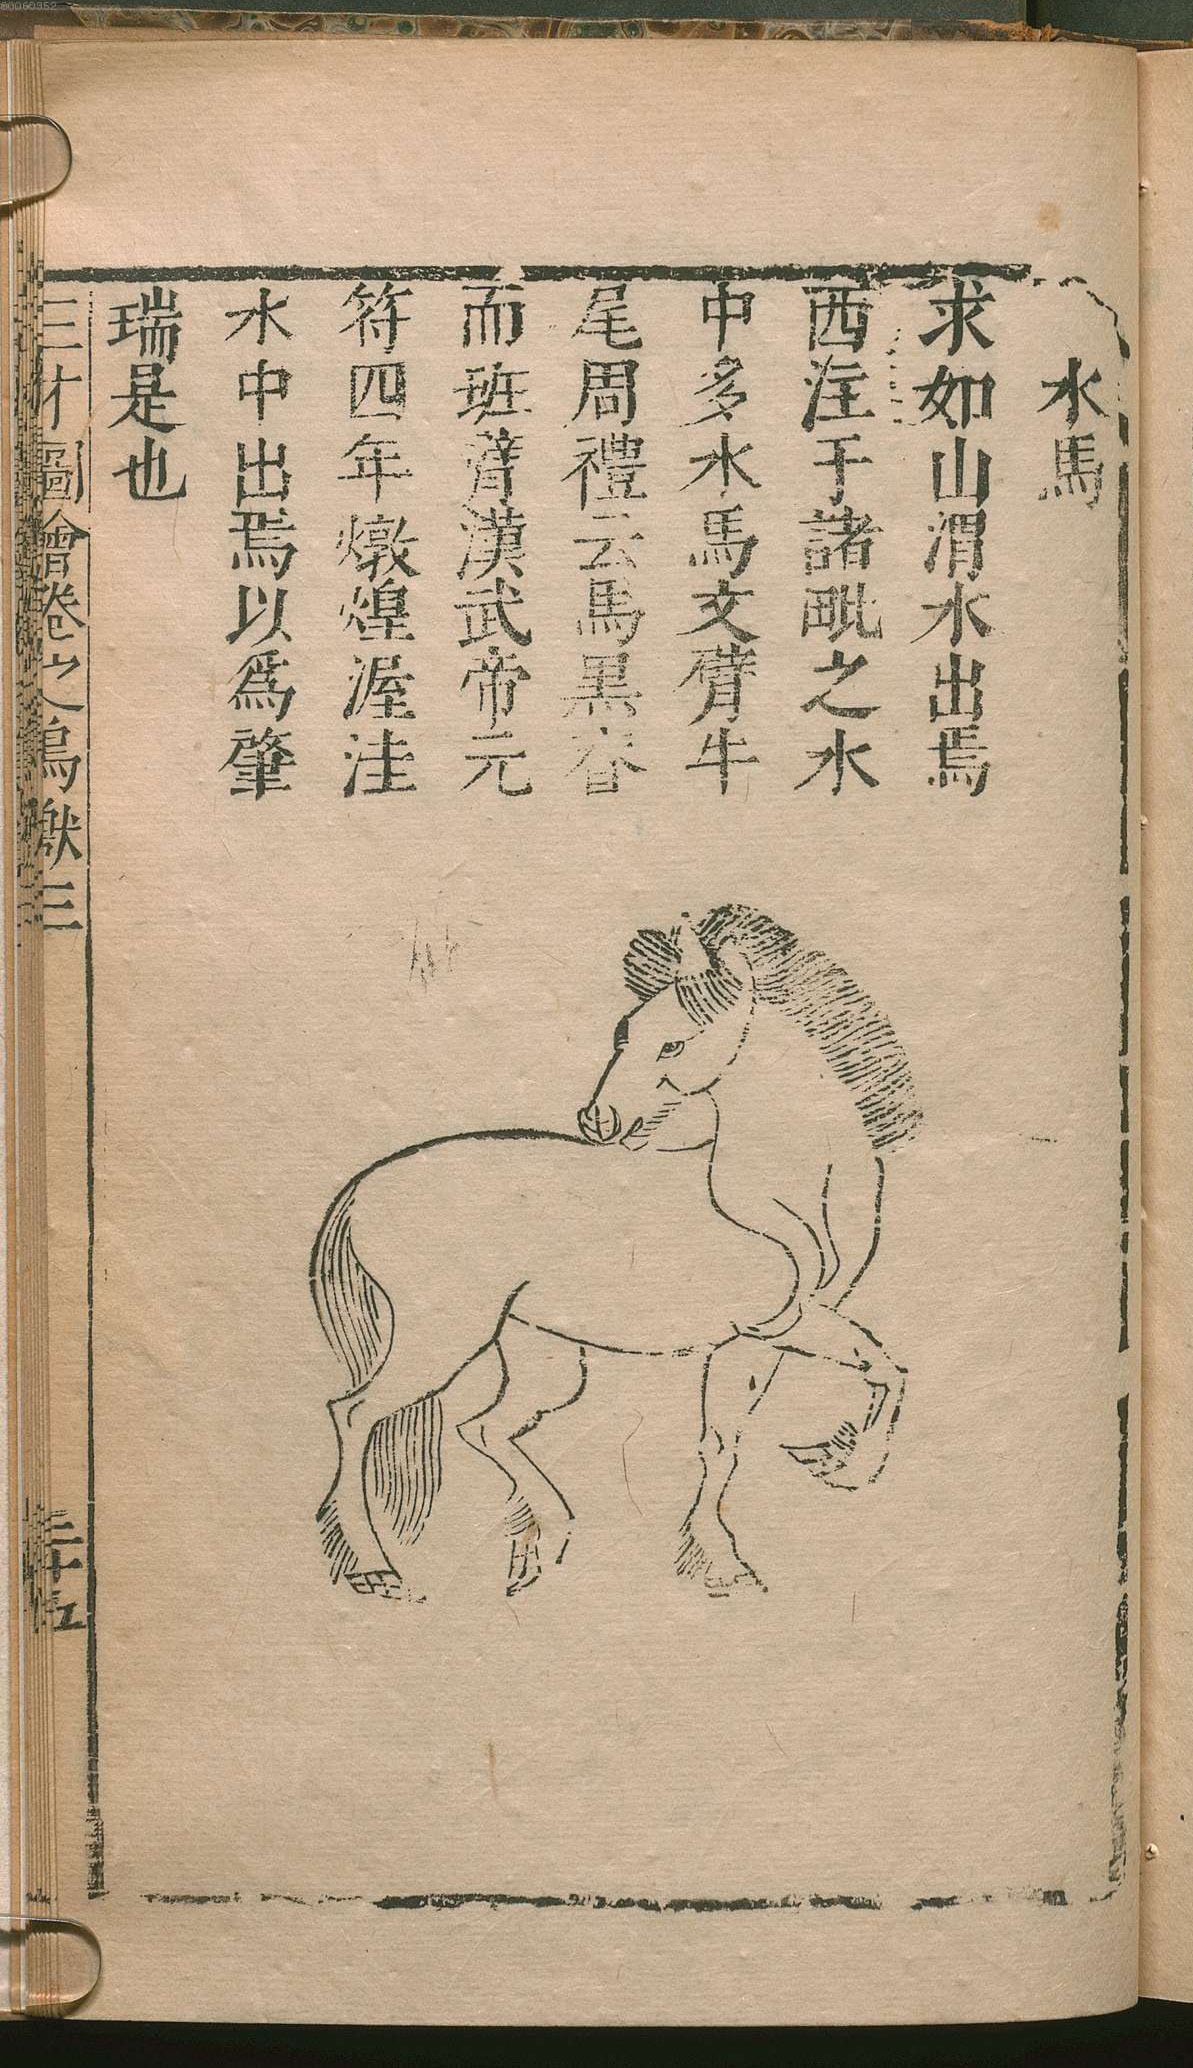 水馬
求如山渭水出焉
西注于諸毗之水
中多水馬文臂牛
尾周禮云馬黑脊
而班臂漢武帝元
符四年燉煌渥洼
水中出焉以爲肇
瑞是也
三才圖會卷之鳥獸三
三十五
80060352